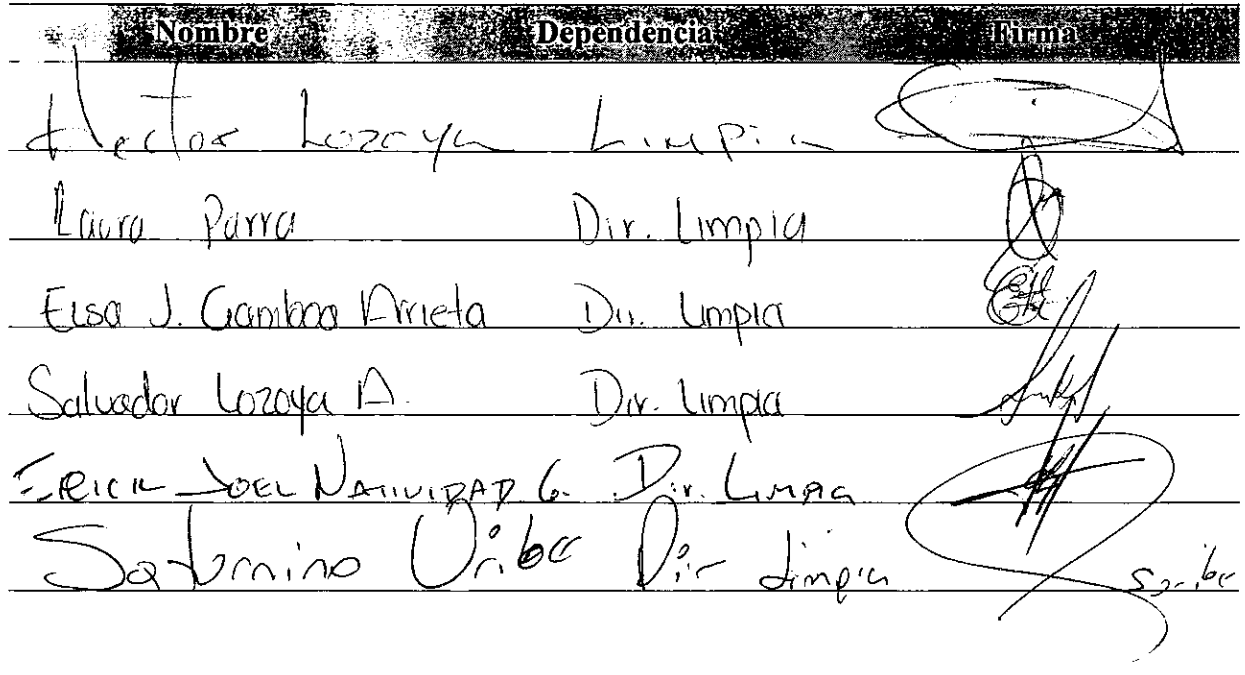 Nombre Dependencia Firma
Hector Lozoya Limpia
Laura Parra Dir. Limpia
Elsa J. Gamboa Arrieta Dir. Limpia
Salvador Lozoya A. Dir. Limpia
Erick Joel Natividad G. Dir. Limpia
Saturnino Uribe Dir Limpia